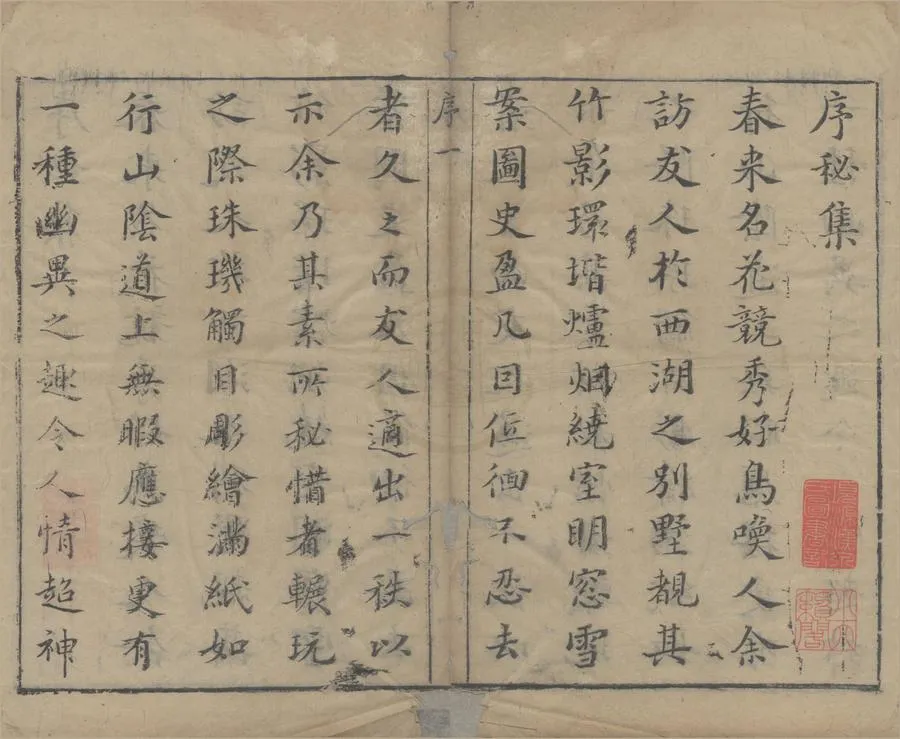 序秘集
春来名花競秀好鳥喚人余
訪友人於西湖之別墅覩其
竹影環堦爐烟繞室明窓雪
案圖史盈几回低徊不忍去
序 一
者久之而友人適出一秩以
示余乃其素所秘惜者輾玩
之際珠璣觸目彫繪滿紙如
行山陰道上無暇應接更有
一種幽異之趣令人情超神